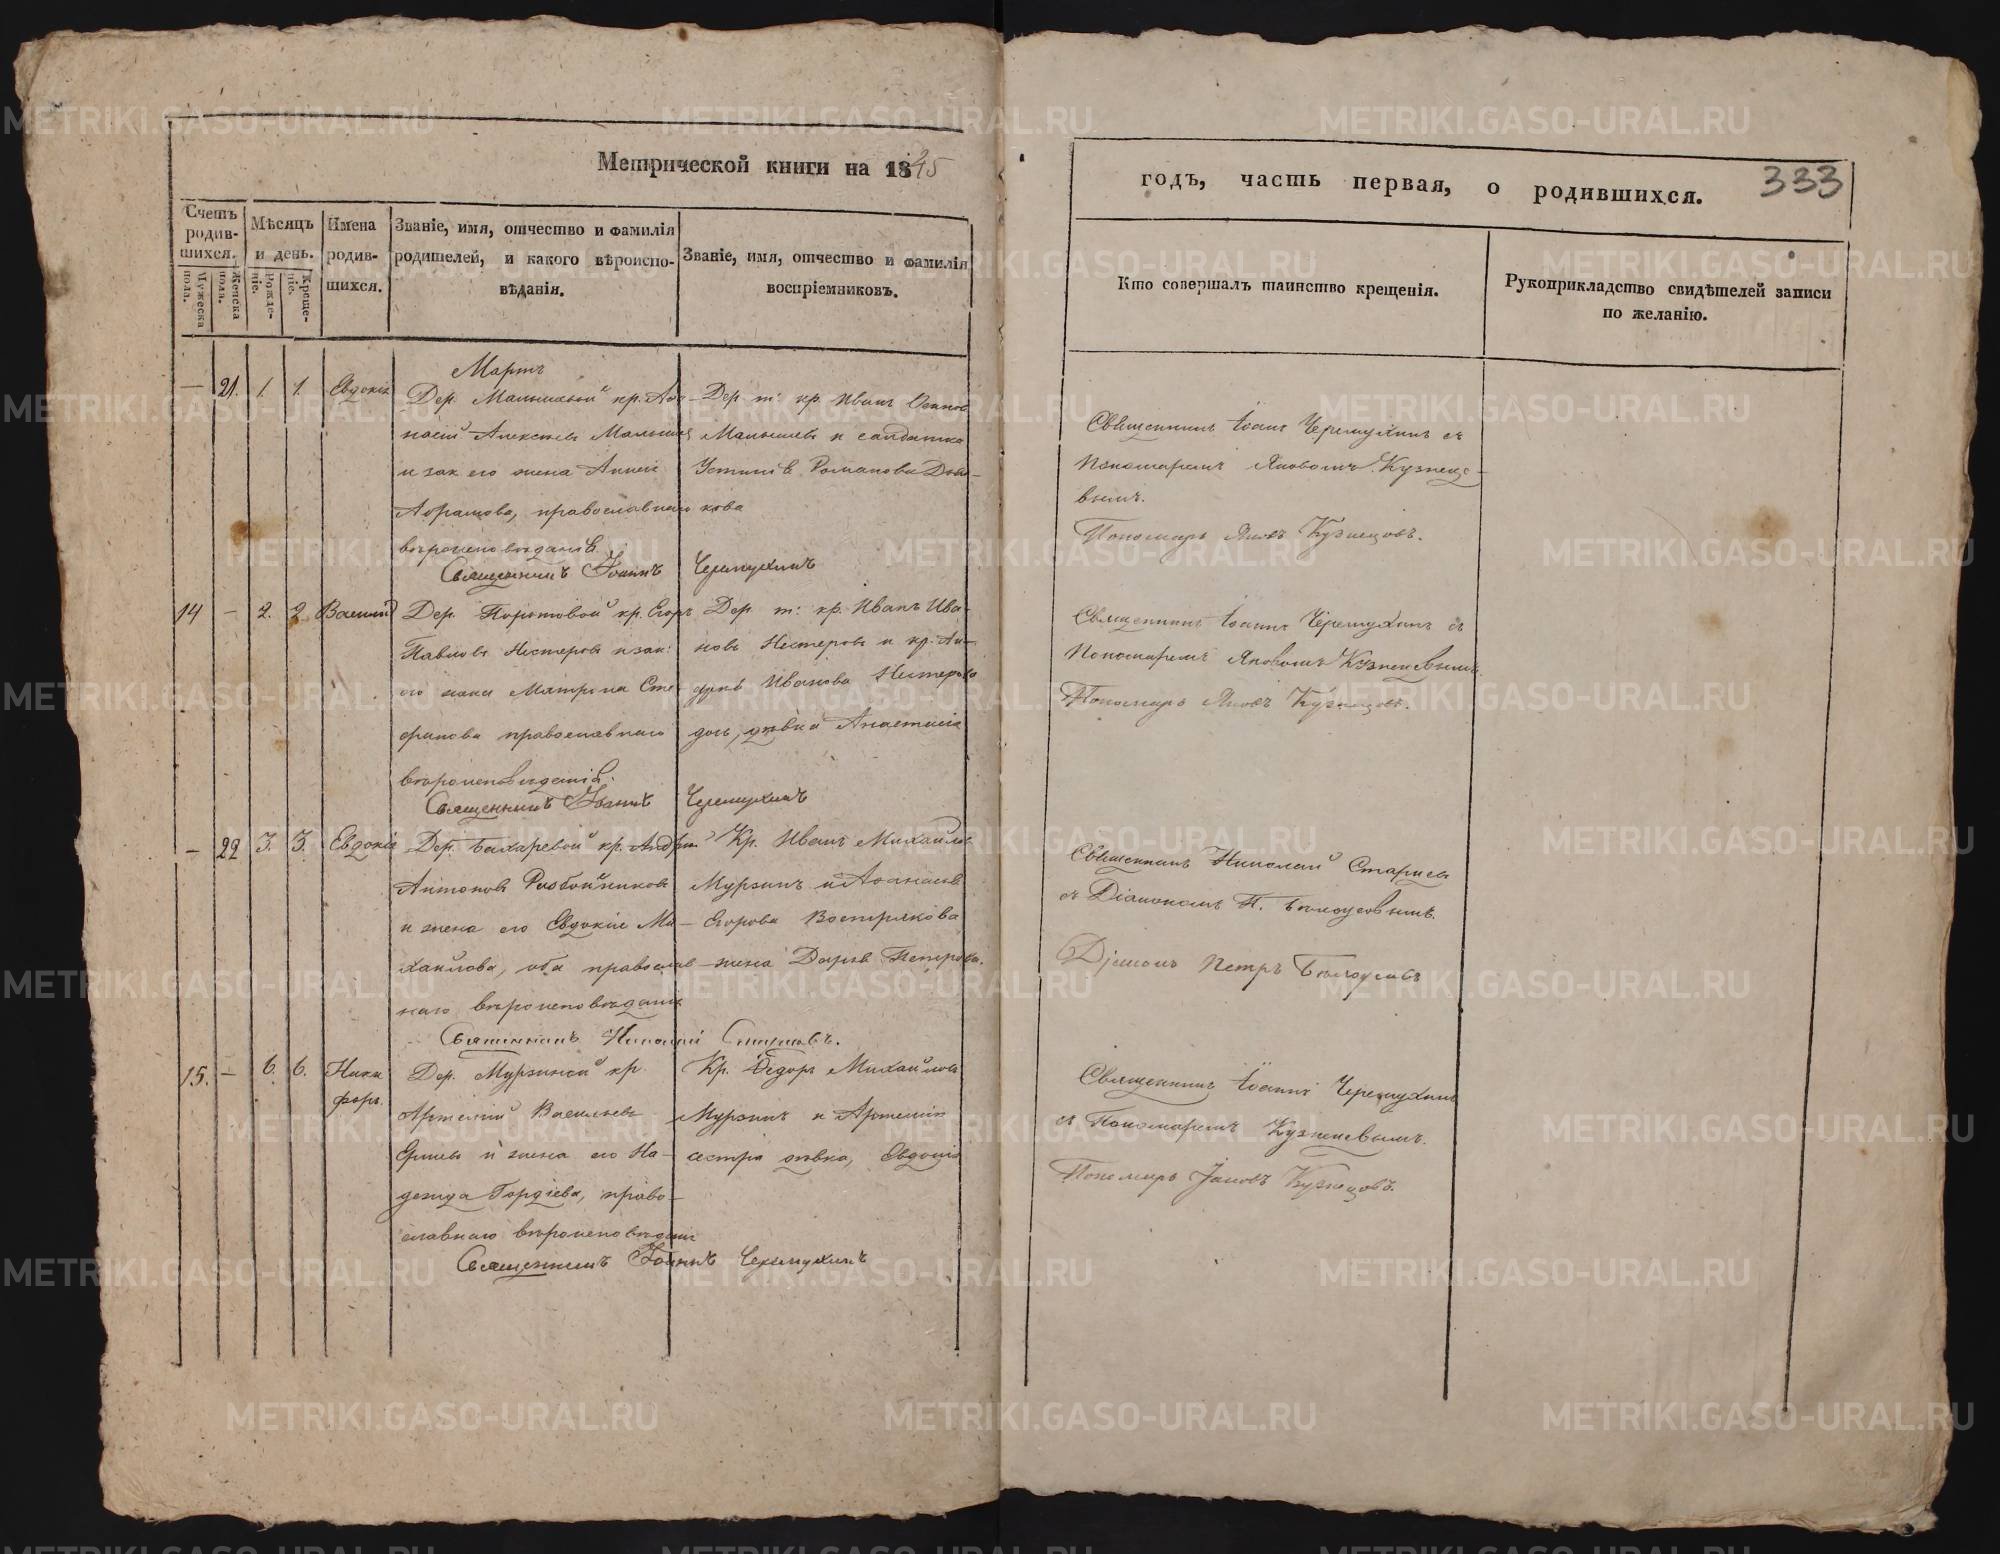 Метрической книги на 1845
годъ, часть первая, о родившихся.
333
Счетъ родившихся.
Мужеска пола.
Женска пола.
Мѣсяцъ и день.
Рожденіе.
Крещеніе.
Имена родившихся.
Званіе, имя, отчество и фамилія
родителей, и какого вѣроиспо-
вѣданія.
Званіе, имя, отчество и фамилія
воспріемниковъ.
Кто совершалъ таинство крещенія.
Рукоприкладство свидѣтелей записи
по желанію.
Мартъ
— 21. 1. 1. Евдокія
Дер. Малышевой кр.
Алексѣевъ Малышевъ
и зак его жена
православнаго
вѣроисповѣданія
Дер. т: кр. Иванъ Осиповъ
Малышевъ и салдатка
Романова
кова
Священникъ Іоаннъ Черемухинъ
Священникъ Іоаннъ Черемухинъ съ
Пономаремъ Яковомъ Кузнеце-
вымъ.
Пономарь Яковъ Кузнецовъ.
14 — 2. 2. Василій
Дер. кр. Егоръ
Павловъ Нестеровъ и зак:
его жена Матрона Сте-
фанова православнаго
вѣроисповѣданія.
Дер. т: кр. Иванъ Ива-
новъ Нестеровъ и кр.
Иванова Нестерова
дочь, дѣвка Анастасія
Священникъ Іоаннъ Черемухинъ
Священникъ Іоаннъ Черемухинъ съ
Пономаремъ Яковомъ Кузнецевымъ.
Пономарь Яковъ Кузнецовъ.
— 22 3. 3. Евдокія
Дер. Бахаревой кр. Андрей
Антоновъ Разбойниковъ
и жена его Евдокія Ми-
хайлова, оба православ-
наго вѣроисповѣданія
Кр. Иванъ Михайловъ
Мурзинъ и
Егорова Вострякова
жена Дарья Петрова.
Священникъ Николай Старцевъ.
Священникъ Николай Старцевъ
съ Діакономъ П. Бѣлоусовымъ.
Діаконъ Петръ Бѣлоусовъ
15. — 6. 6. Ники-
форъ.
Дер. Мурзиной кр.
Артемій Васильевъ
и жена его На-
дежда Гордіева, право-
славнаго вѣроисповѣданія
Кр. Ѳедоръ Михайловъ
Мурзинъ и Артемія
сестра дѣвка, Евдокія
Священникъ Іоаннъ Черемухинъ
Священникъ Іоаннъ Черемухинъ
съ Пономаремъ Кузнецевымъ.
Пономарь Іаковъ Кузнецовъ.
METRIKI.GASO-URAL.RU